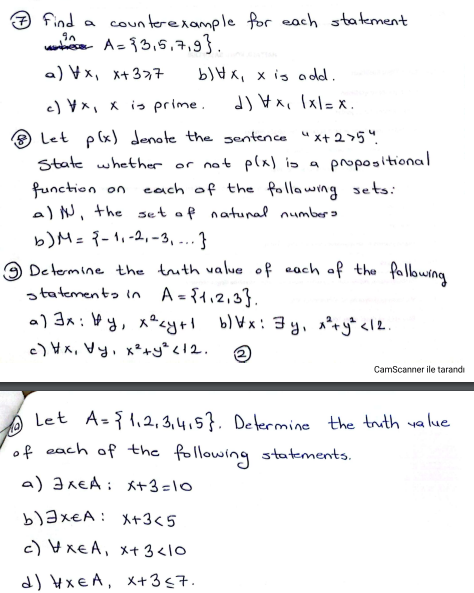 ⑦ Find a counterexample for each statement
in A = {3,5,7,9}.
a) ∀x, x+3≥7 b) ∀x, x is odd.
c) ∀x, x is prime. d) ∀x, |x| = x.
⑧ Let p(x) denote the sentence "x+2>5".
State whether or not p(x) is a propositional
function on each of the following sets:
a) ℕ, the set of natural numbers
b) M = {-1,-2,-3,...}
⑨ Determine the truth value of each of the following
statements in A = {1,2,3}.
a) ∃x: ∀y, x²<y+1 b) ∀x: ∃y, x²+y²<12.
c) ∀x, ∀y, x²+y²<12. ②
CamScanner ile tarandı
⑩ Let A = {1,2,3,4,5}. Determine the truth value
of each of the following statements.
a) ∃x∈A: x+3=10
b) ∃x∈A: x+3<5
c) ∀x∈A, x+3<10
d) ∀x∈A, x+3≤7.